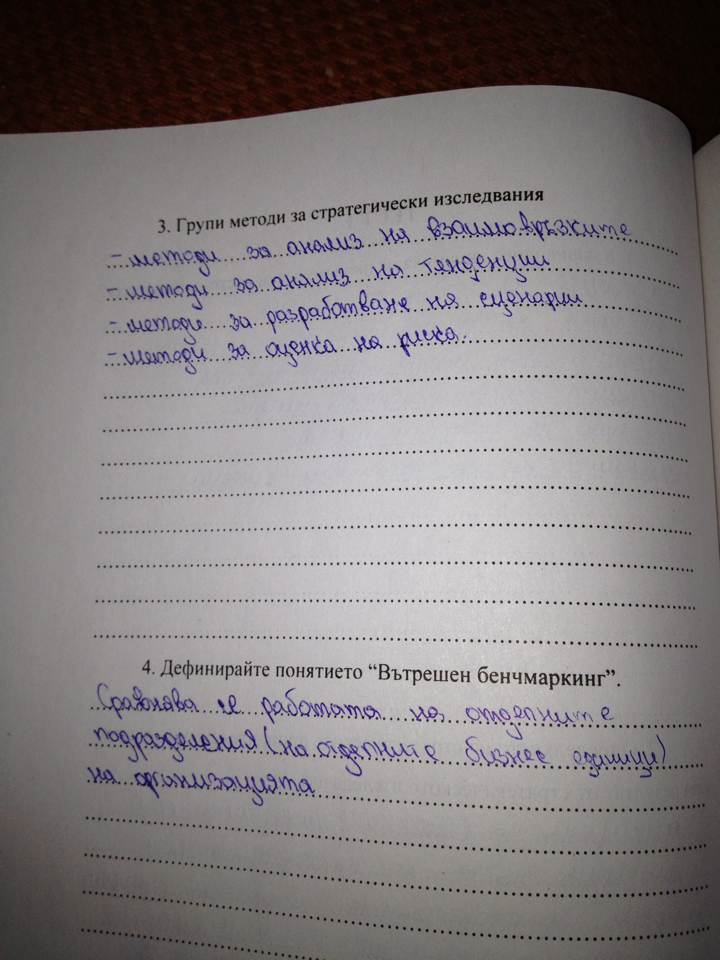 3. Групи методи за стратегически изследвания
- методи за анализ на взаимовръзките
- методи за анализ на тенденции
- методи за разработване на сценарии
- методи за оценка на риска.
4. Дефинирайте понятието “Вътрешен бенчмаркинг”.
Сравнява се работата на отделните
подразделения (на отделните бизнес единици)
на организацията